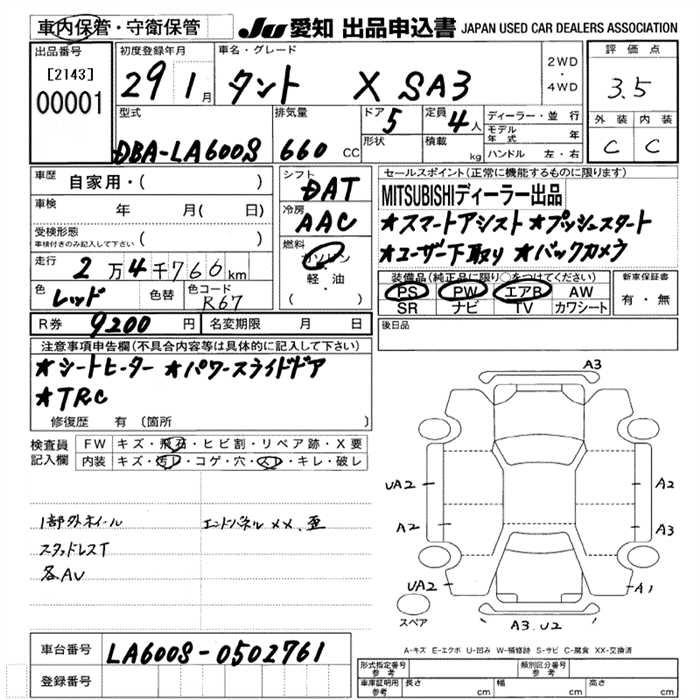 車内保管・守衛保管 JU 愛知 出品申込書 JAPAN USED CAR DEALERS ASSOCIATION
出品番号 初度登録年月 車名・グレード 2WD・4WD 評価点
[2143] 00001 29 1月 タント X SA3 3.5
型式 排気量 ドア 定員 ディーラー・並行 外装 内装
5 4人 モデル年式 年 C C
DBA-LA600S 660cc 形状 積載 kg ハンドル 左・右
車歴 自家用・( ) シフト DAT セールスポイント(正常に機能するものに限ります)
車検 年 月( 日) 冷房 AAC MITSUBISHIディーラー出品
受検形態 車検付きのみ記入して下さい ( ) ★スマートアシスト ★プッシュスタート
走行 2万4千766km 燃料 ガソリン 軽・油 ( ・ ) ★ユーザー下取り ★バックカメラ
色 レッド 色替 色コード R67 装備品(純正品に限り○をつけてください) 新車保証書
PS PW エアB AW 有・無
SR ナビ TV カワシート
R券 9200円 名変期限 月 日 後日品
注意事項申告欄(不具合内容等は具体的に記入して下さい)
★シートヒーター ★パワースライドドア
★TRC
修復歴 有(箇所 )
検査員記入欄 FW キズ・飛石・ヒビ割・リペア跡・X要
内装 キズ・汚レ・コゲ・穴・スレ・キレ・破レ
1部外ホイール エンドパネルXX、歪
スタッドレスT
各AU
A3
UA2 A2
A2 A3
UA2 A1
スペア A3.U2
A-キズ E-エクボ U-凹み W-補修跡 S-サビ C-腐食 XX-交換済
車台番号 LA600S-0502761
登録番号
形式指定番号 参考 類別区分番号 参考
車庫証明用 参考 長さ cm 幅 cm 高さ cm